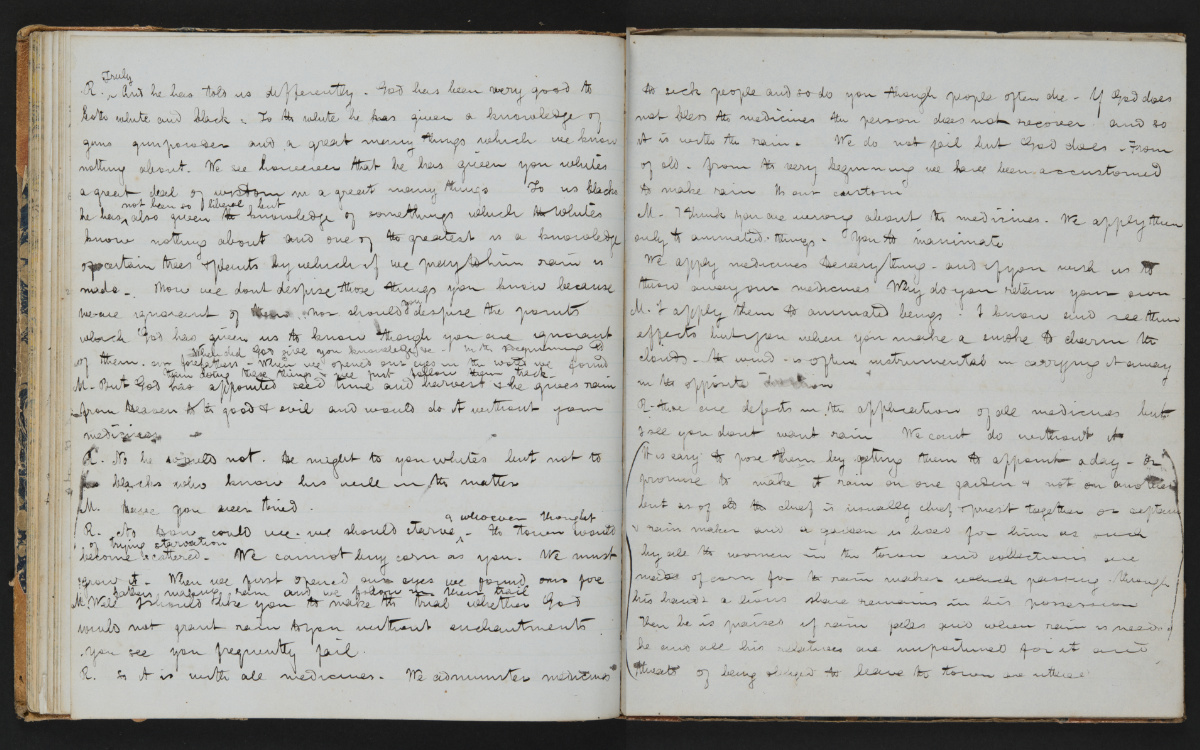 Truly
R. And he has told us differently. God has been very good to
both white and black. To the white he has given a knowledge of
guns gunpowder and a great many things which we know
nothing about. We see however that he has given you whites
a great deal of wisdom in a great many things To us blacks
not been so liberal but
he has also given the knowledge of somethings which the Whites
know nothing about and one of the greatest is a knowledge
of certain trees & plants by which if we pray to him rain is
made. Now we dont despise those things you know because
we are ignorant of nor should you despise the
which God has given us to know though you are ignorant
of them. When did God give you knowledge
forefathers When we opened our eyes in the world we found
them doing these things & we just follow them
M. But God has appointed seed time and harvest & he gives rain
from heaven to the good & evil and would do it without your
medicines
R. No he would not. He might to you whites but not to
blacks who know his will in the matter
M. Have you ever tried.
R. No How could we. we should starve & whoever thought
of trying starvation the town would
become scattered. We cannot buy corn as you. We must
grow it. When we first opened our eyes we found our fore
fathers making rain and we follow in their trail
M. Well I should like you to make the trial whether God
would not grant rain to you without enchantments
you see you frequently fail.
R. So it is with all medicines. We administer medicines
to sick people and so do you though people often die. If God does
not bless the medicines the person does not recover and so
it is with the rain. We do not fail but God does. From
of old. from the very beginning we have been accustomed
to make rain tis our custom
M. I think you are wrong about the medicines. We apply them
only to animated things. You to inanimate
We apply medicines to everything. and if you wish us to
throw away our medicines Why do you retain your own
M. I apply them to animated beings. I know and see their
effects but you when you make a smoke to charm the
clouds. the wind is often instrumental in carrying it away
in the opposite direction
R. there are defects in the application of all medicines but
I see you dont want rain We cant do without it
(It is easy to pose them by getting them to appoint a day. or
promise to make it rain on one garden & not on another
but as of old the chief is usually chief priest together or
& rain maker and a garden is hoed for him as such
by all the women in the town and collections are
made of corn for the rain maker which passing through
his hands a lions share remains in his possession
Then he is praised if rain falls and when rain is needed
he and all his relatives are importuned for it and
threats of being obliged to leave the town are uttered